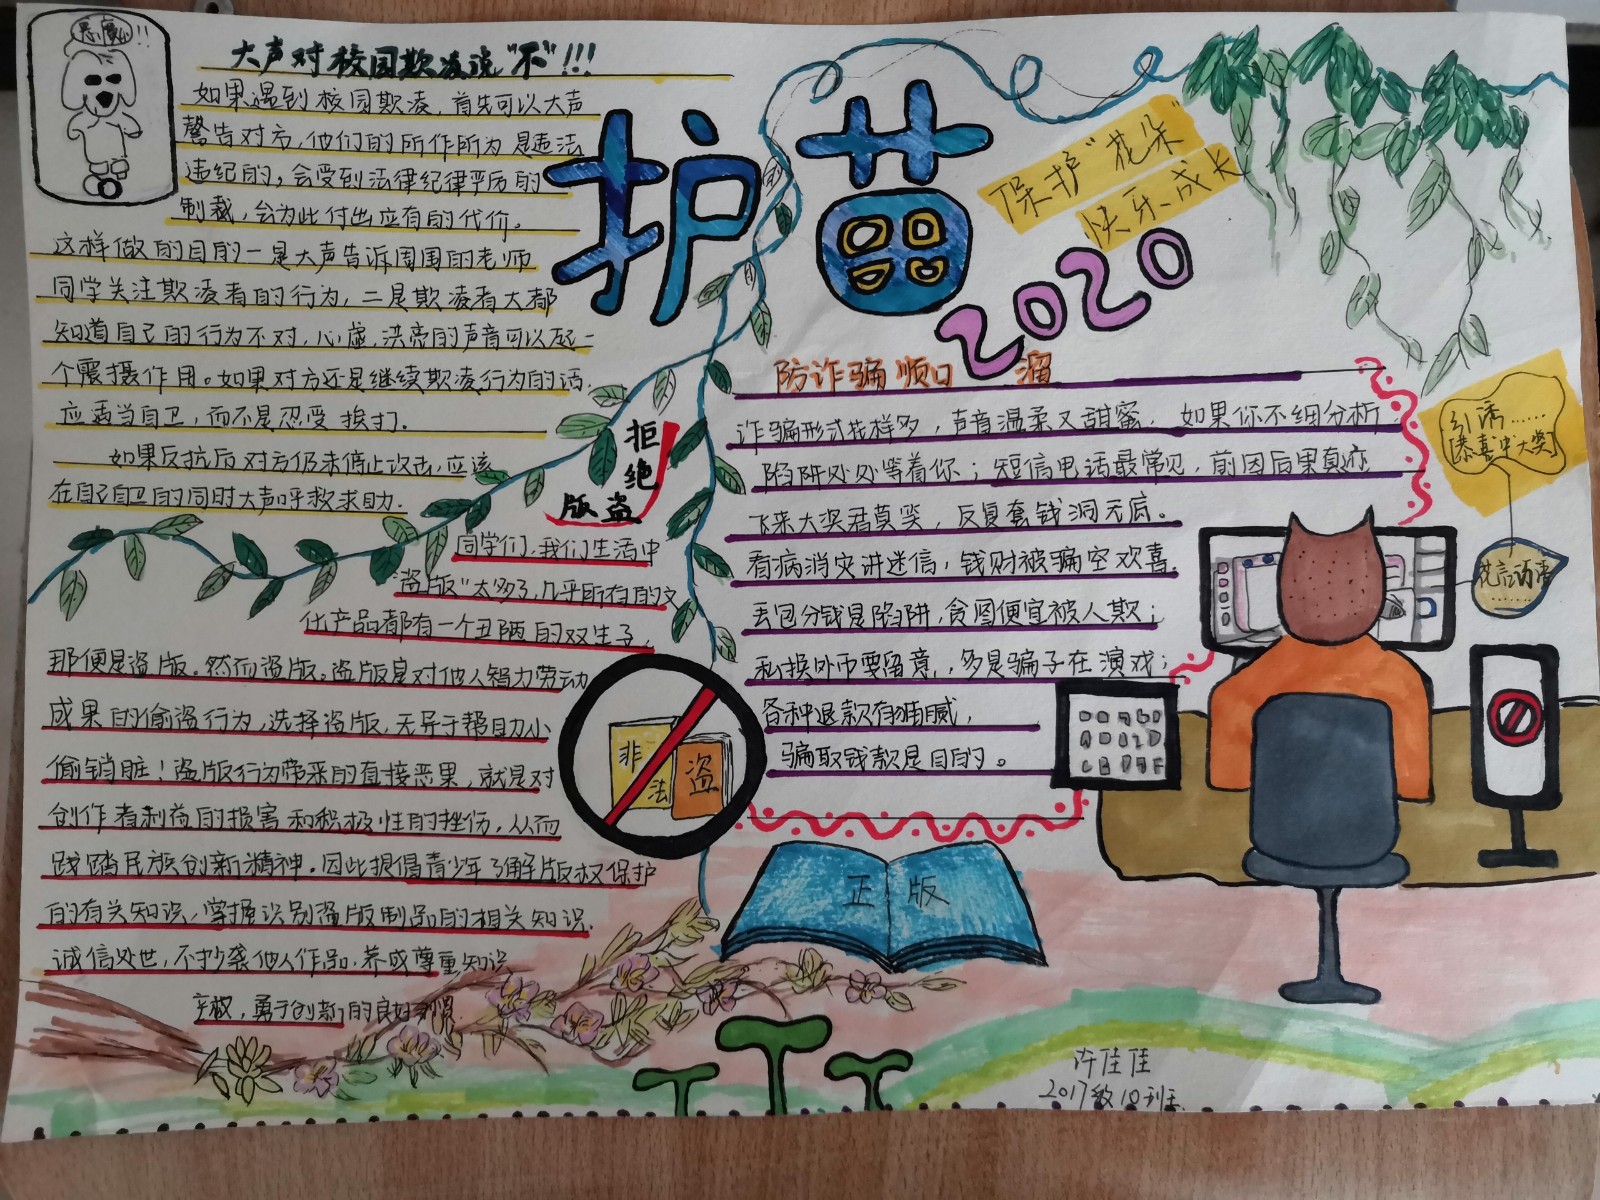 恶魔的!!
大声对校园欺凌说“不”!!!
如果遇到校园欺凌，首先可以大声
警告对方，他们的所作所为是违法
违纪的，会受到法律纪律严厉的
制裁，会为此付出应有的代价。
这样做的目的一是大声告诉周围的老师
同学关注欺凌者的行为，二是欺凌者大都
知道自己的行为不对，心虚，洪亮的声音可以起一
个震摄作用。如果对方还是继续欺凌行为的话，
应适当自卫，而不是忍受挨打。
如果反抗后对方仍未停止攻击，应该
在自己自卫的同时大声呼救求助。
护苗
2020
保护“花朵”
快乐成长
拒绝
版盗
同学们，我们生活中
“盗版”太多了，几乎所有的文
化产品都有一个丑陋的双生子，
那便是盗版。然而盗版。盗版是对他人智力劳动
成果的偷盗行为，选择盗版，无异于帮助小
偷销脏！盗版行为带来的直接恶果，就是对
创作者利益的损害和积极性的挫伤，从而
践踏民族创新精神。因此提倡青少年了解版权保护
的有关知识，掌握识别盗版制品的相关知识，
诚信处世，不抄袭他人作品，养成尊重知识
产权，勇于创新的良好习惯
非法
盗
防诈骗顺口溜
诈骗形式花样多，声音温柔又甜蜜，如果你不细分析
陷阱处处等着你；短信电话最常见，前因后果真迹
飞来大奖君莫笑，反复套钱洞无底。
看病消灾讲迷信，钱财被骗空欢喜.
丢包分钱是陷阱，贪图便宜被人欺；
私换外币要留意，多是骗子在演戏；
各种退款有猫腻，
骗取钱款是目的。
引诱……
[恭喜中大奖]
花言巧语
……
正版
许佳佳
2017级10班